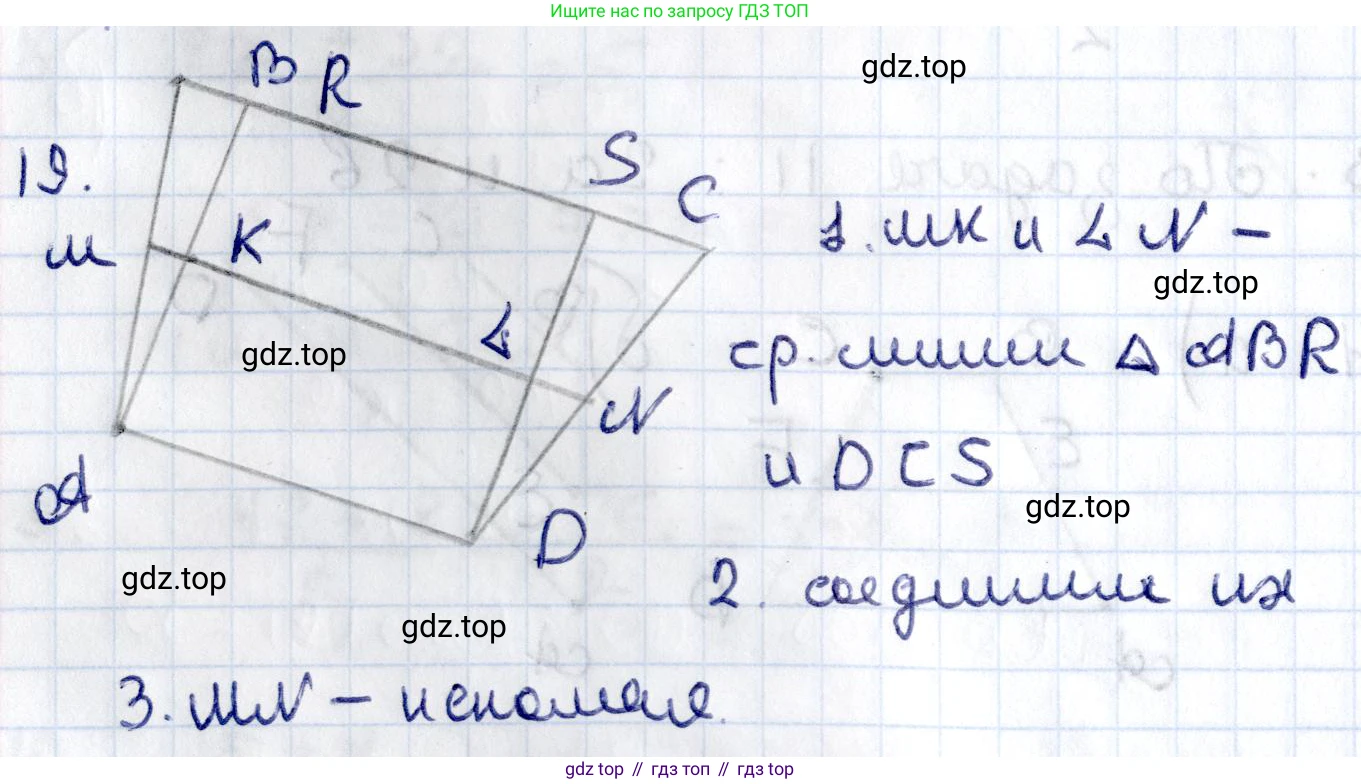 Ищите нас по запросу ГДЗ ТОП
B R
gdz.top
19.
S
C
M
K
1. MK и LN –
gdz.top
L
gdz.top
ср. линии Δ ABR
N
A
и DCS
gdz.top
D
gdz.top
2. соединим их
gdz.top
3. MN – искомая.
gdz top // гдз топ // гдз top